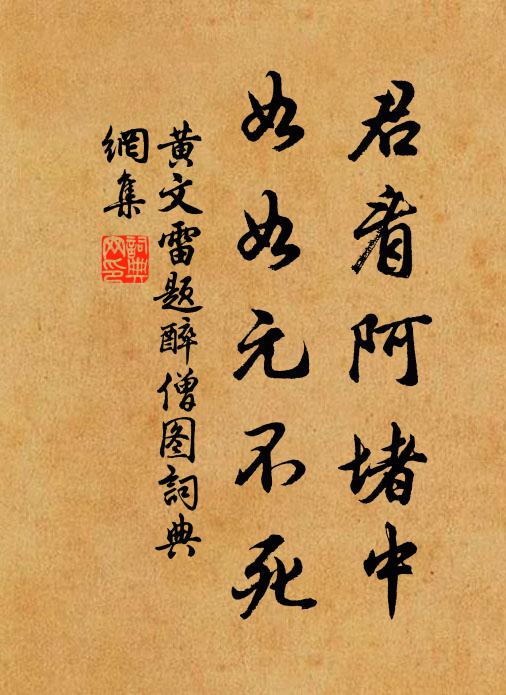 君看阿堵中
如如元不死
黄文雷题醉僧图詞典
網集
詞典
网印